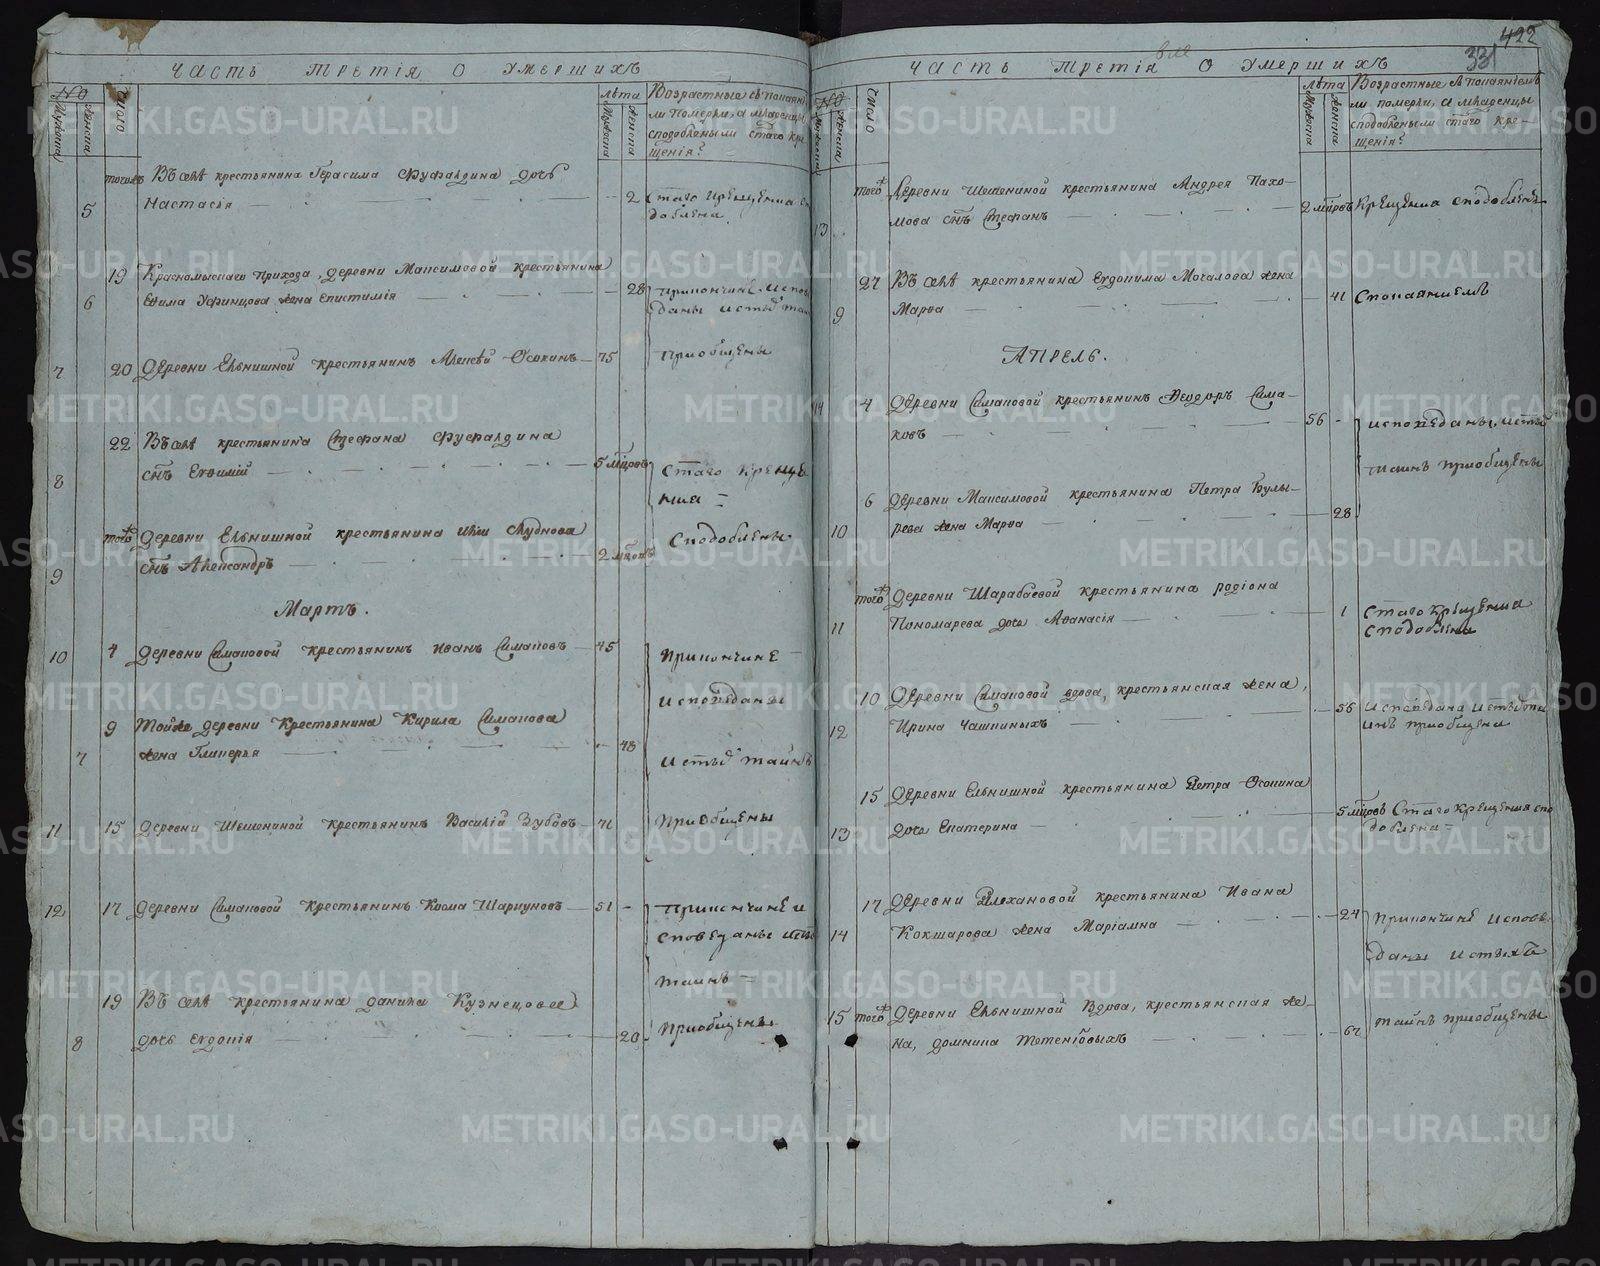 422
331
ЧАСТЬ ТРЕТІЯ О УМЕРШИХЪ
№
Мужеска
Женска
Число
лѣта
Мужеска
Женска
Возрастные съ покаяні-
ли померли, а младенцы
сподоблены ли стаго кре
щенія?
Въ селѣ крестьянина Герасима дочь
5 Настасья 2 стаго крещенія спо
доблена
19 Красномысскаго прихода, деревни Максимовой крестьянина
6 Ефима жена Епистимія 28 Припончинѣ исповѣ
даны и стыхъ таинъ
7 20 Деревни Ельнишной крестьянинъ Алексѣй Осокинъ 75 приобщены
22 Въ селѣ крестьянина Стефана
8 снъ Евфимій 5 мцовъ стаго креще
нія
того Деревни Ельнишной крестьянина Чуднова
сподоблены
9 снъ Александръ 2 мцовъ
Мартъ.
10 4 Деревни Симановой крестьянинъ Иванъ Симановъ 45 Припончинѣ
исповѣданы
9 Тойже деревни крестьянина Кирила Симанова
7 жена Гликерья 48
и стыхъ таинъ
11 15 Деревни Шешениной крестьянинъ Василій Зубовъ 71 приобщены
12 17 Деревни Симановой крестьянинъ Косма 51 Припончинѣ и
споведаны и стыхъ
таинъ
19 Въ селѣ крестьянина Данила Кузнецова
8 дочь Евдокія 20 приобщены
ЧАСТЬ ТРЕТІЯ О УМЕРШИХЪ
№
Мужеска
Женска
Число
лѣта
Мужеска
Женска
Возрастные съ покаяніемъ
ли померли, а младенцы
сподоблены ли стаго кре-
щенія?
того Деревни Шешениной крестьянина Андрея Пахо-
13 мова снъ Стефанъ 2 мцовъ крещенія сподобленъ
27 Въ селѣ крестьянина Евдокима Мочалова жена
9 Марѳа 41 спокаяніемъ
АПРЕЛЬ.
14 4 Деревни Симановой крестьянинъ Ѳеодоръ Сима-
ковъ 56 исповѣданы, и стыхъ
таинъ приобщены
6 Деревни Максимовой крестьянина Петра Булы-
10 рева жена Марѳа 28
того Деревни Шарабаевой крестьянина Родіона
11 Пономарева дочь Аѳанасія 1 стаго крещенія
сподоблена
10 Деревни Симановой вдова, крестьянская жена,
12 Ирина Чашиныхъ 56 исповѣдана и стыхъ та
инъ приобщена
15 Деревни Ельнишной крестьянина Петра Осокина
13 дочь Екатерина 5 мцовъ стаго крещенія спо
доблена
17 Деревни Плехановой крестьянина Ивана
14 Кокшарова жена Маріамна 24 Припончинѣ исповѣ
даны и стыхъ
15 того Деревни Ельнишной вдова, крестьянская же-
на, Домника 62 таинъ приобщены
METRIKI.GASO-URAL.RU